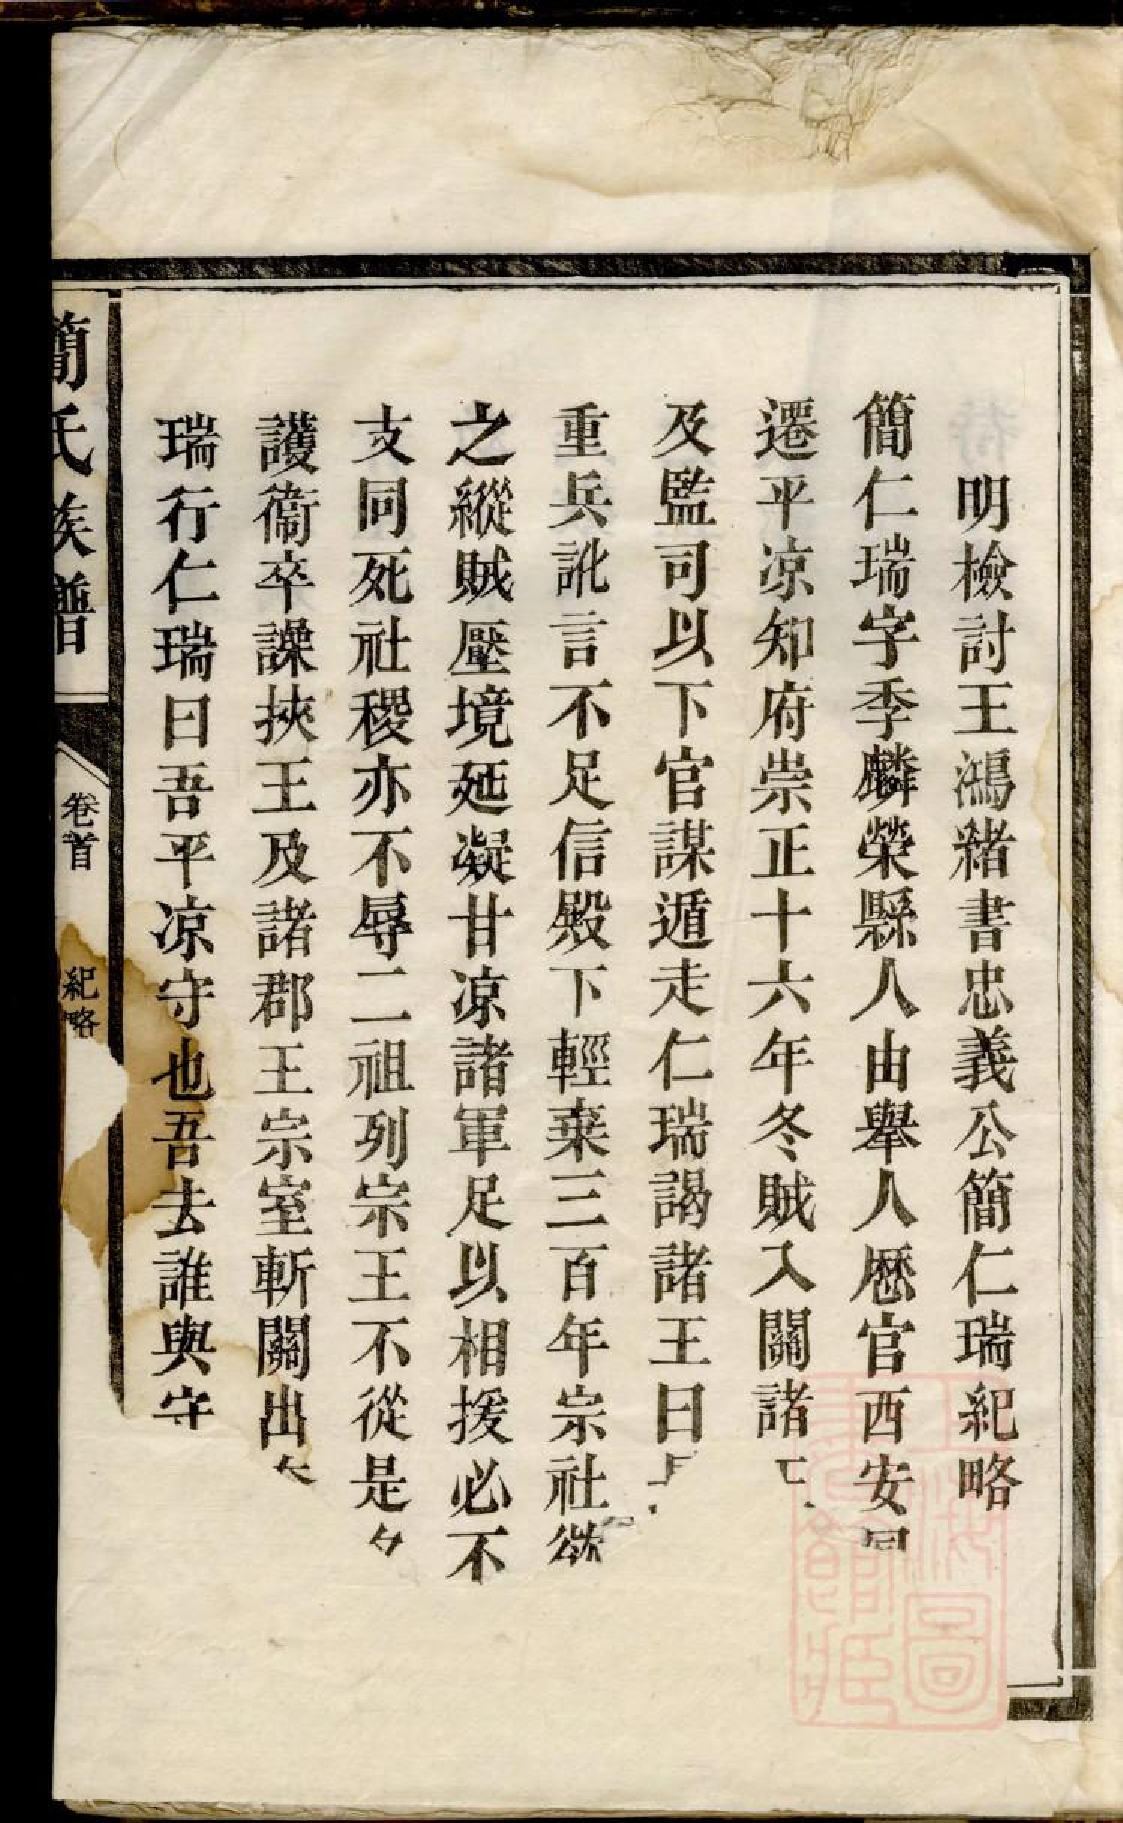 明檢討王鴻緒書忠義公簡仁瑞紀略
簡仁瑞字季麟榮縣人由舉人歷官西安同
遷平凉知府崇正十六年冬賊入關諸王
及監司以下官謀遁走仁瑞謁諸王曰
重兵訛言不足信殿下輕棄三百年宗社欲
之縱賊壓境延凝甘凉諸軍足以相援必不
支同死社稷亦不辱二祖列宗王不從是夕
護衞卒譟挾王及諸郡王宗室斬關出
瑞行仁瑞曰吾平凉守也吾去誰與守
簡氏族譜
卷首
紀略
圖